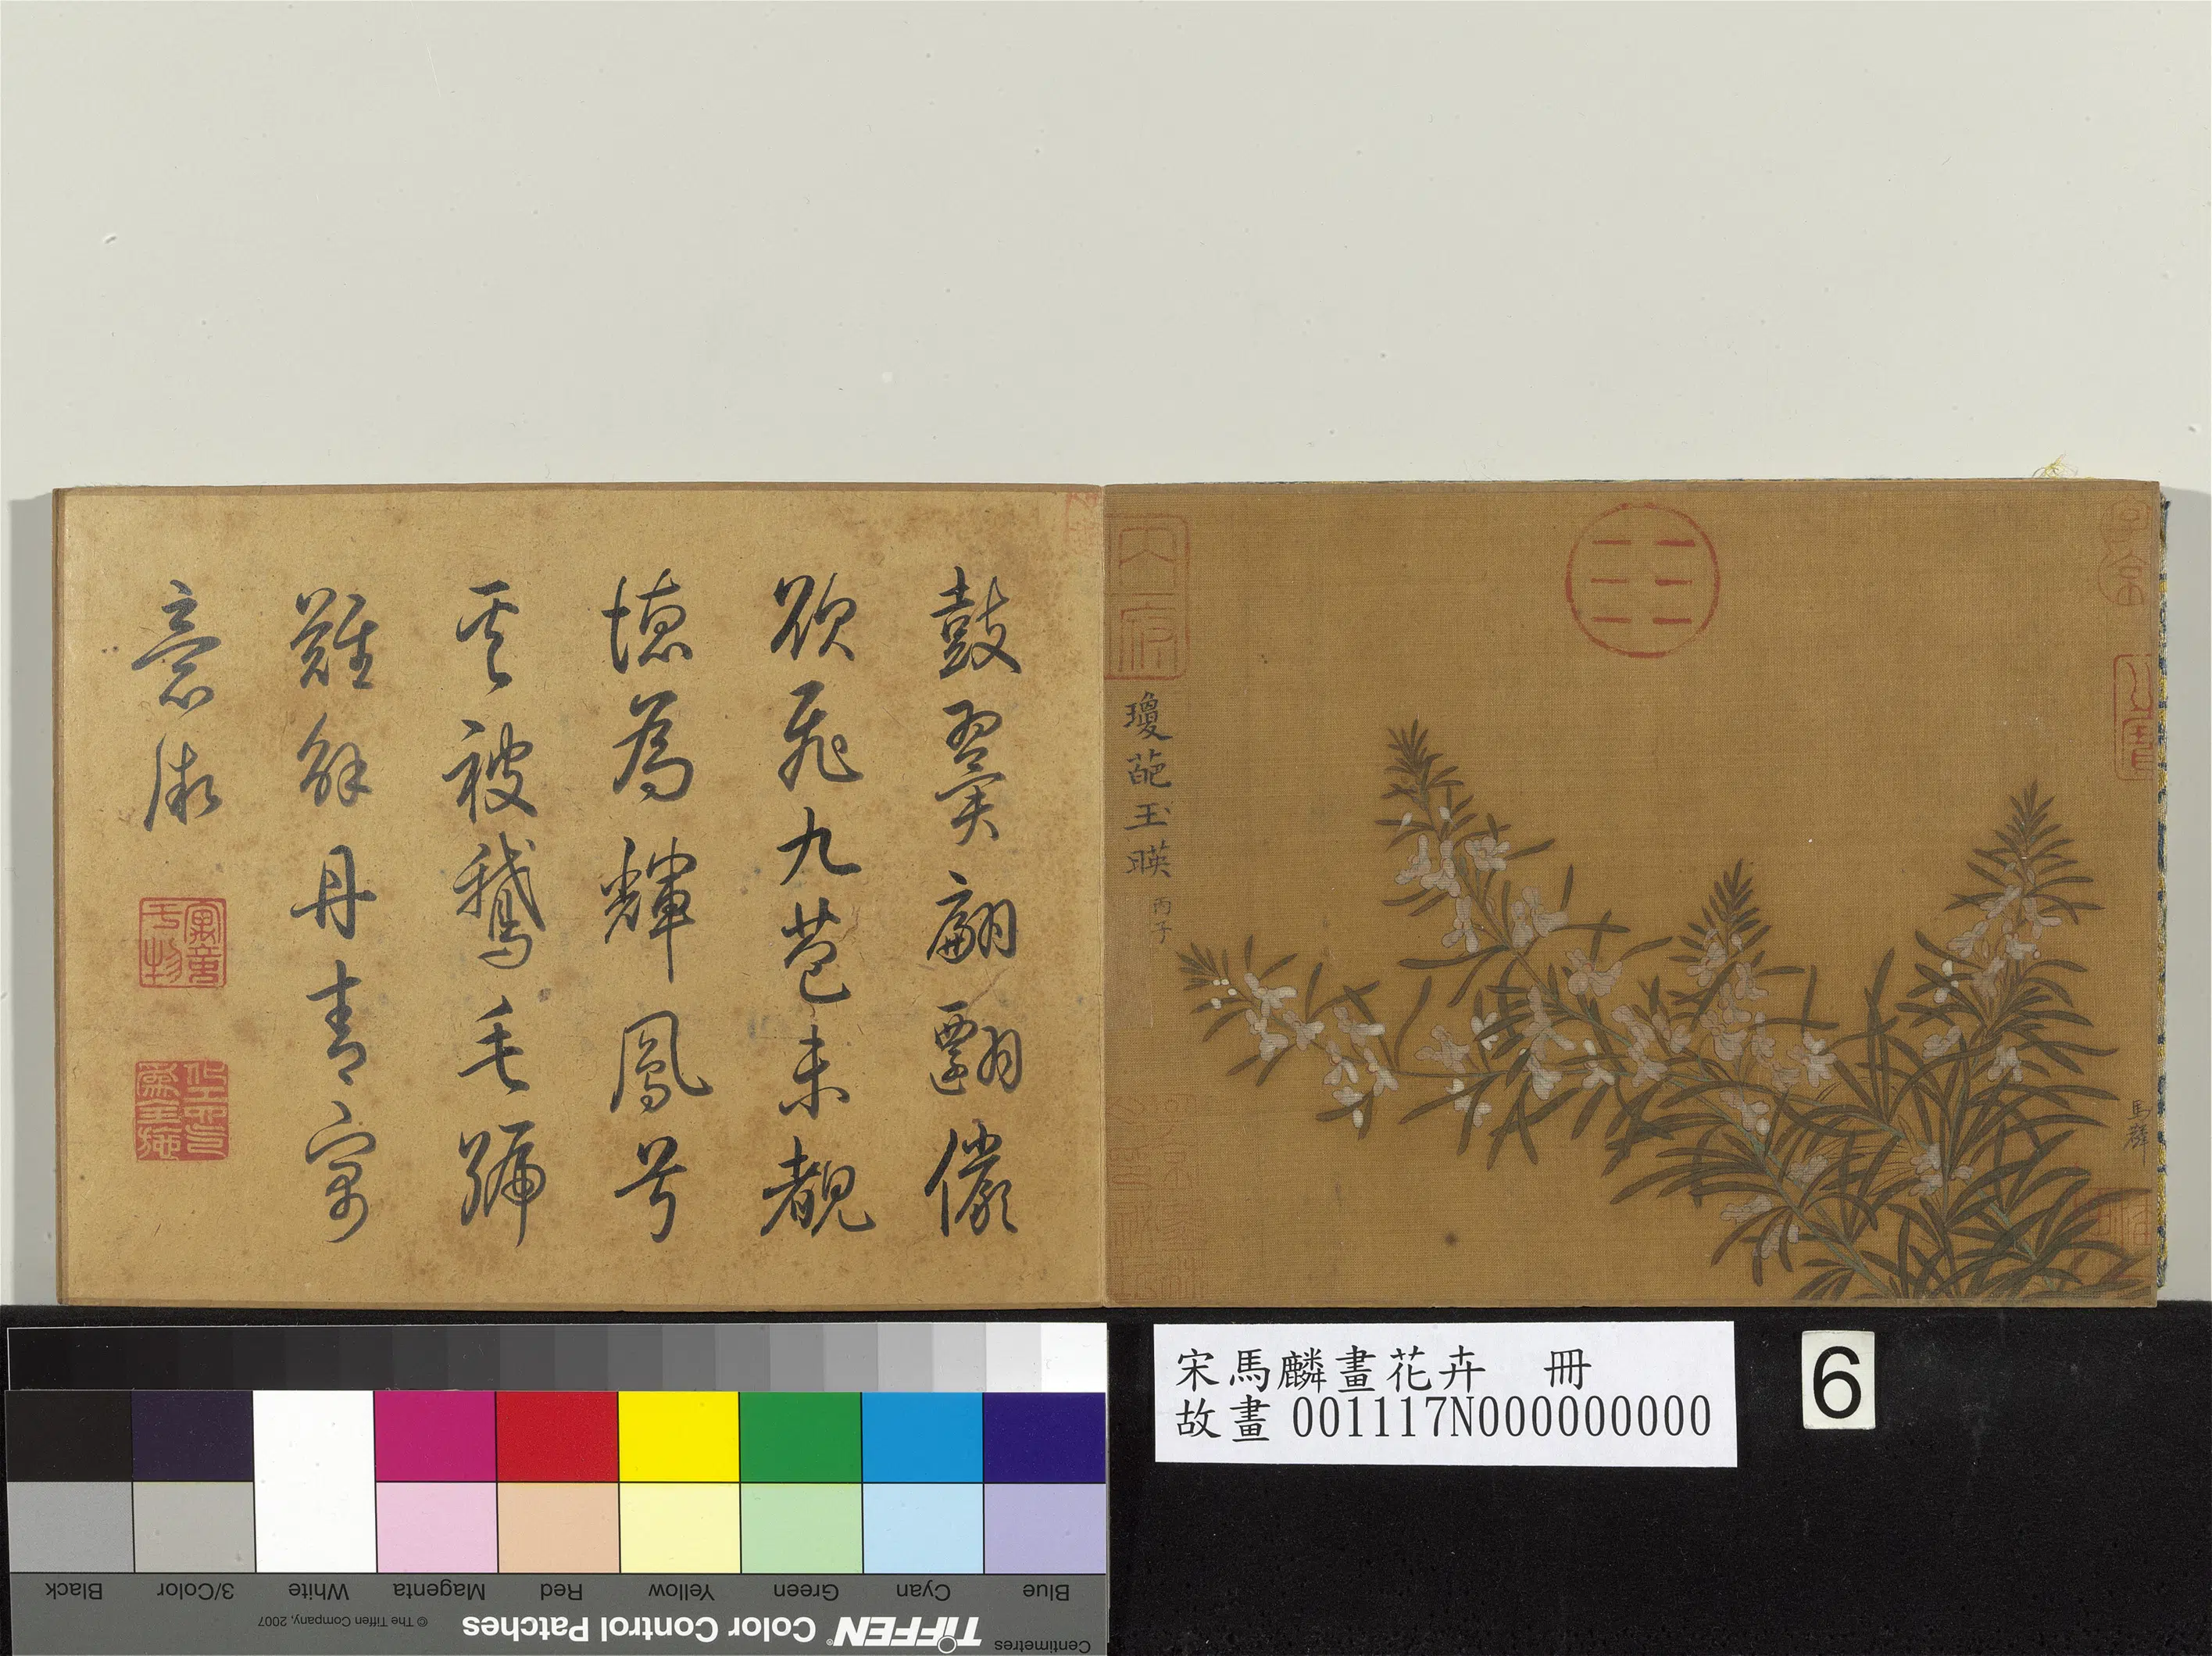 鼓翼翩翾儼
欲飛九苞未覩
德為輝鳳兮
被鵞毛號
難解丹青寓
意微
瓊葩玉暎
丙子
馬麟
宋馬麟畫花卉 冊
故畫 001117N000000000
6
Black
3/Color
White
Magenta
Red
Yellow
Green
Cyan
Blue
© The Tiffen Company, 2007
TIFFEN® Color Control Patches
Centimetres